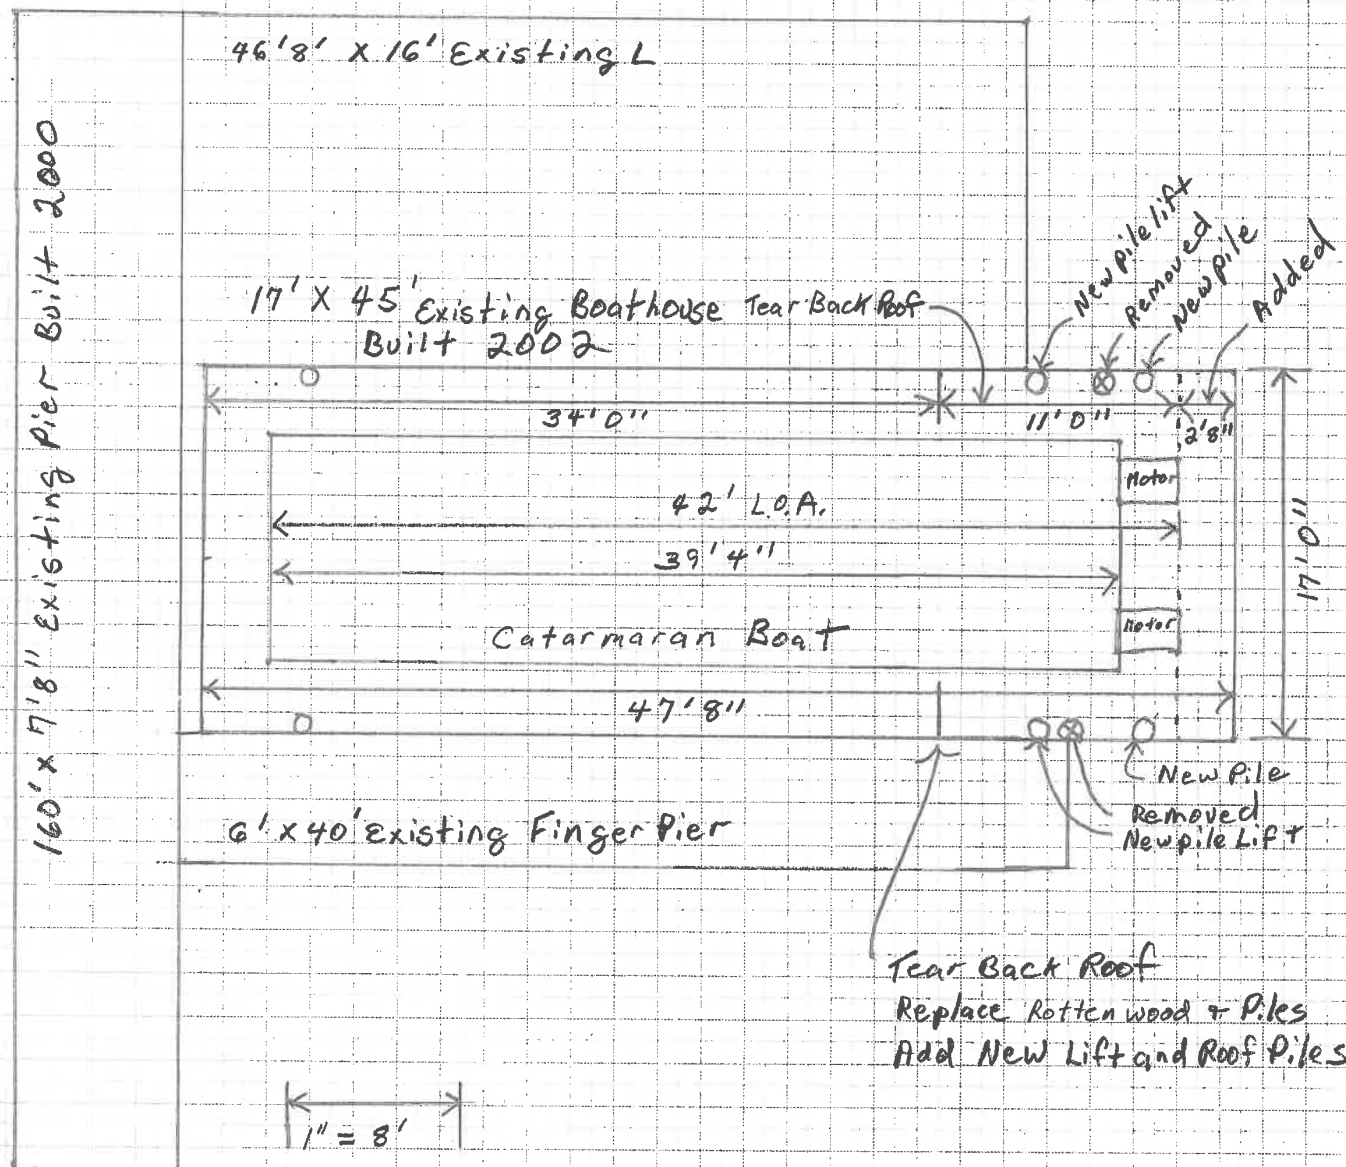 46'8' X 16' Existing L
160' x 7'8" Existing Pier Built 2000
17' X 45' Existing Boathouse
Built 2002
Tear Back Roof
New pile lift
Removed
New pile
Added
34'0"
11'0"
2'8"
Motor
42' L.O.A.
39'4"
17'0"
Catarmaran Boat
Motor
47'8"
New Pile
Removed
New pile Lift
6' x 40' existing Finger Pier
Tear Back Roof
Replace Rotten wood + Piles
Add New Lift and Roof Piles
1" = 8'